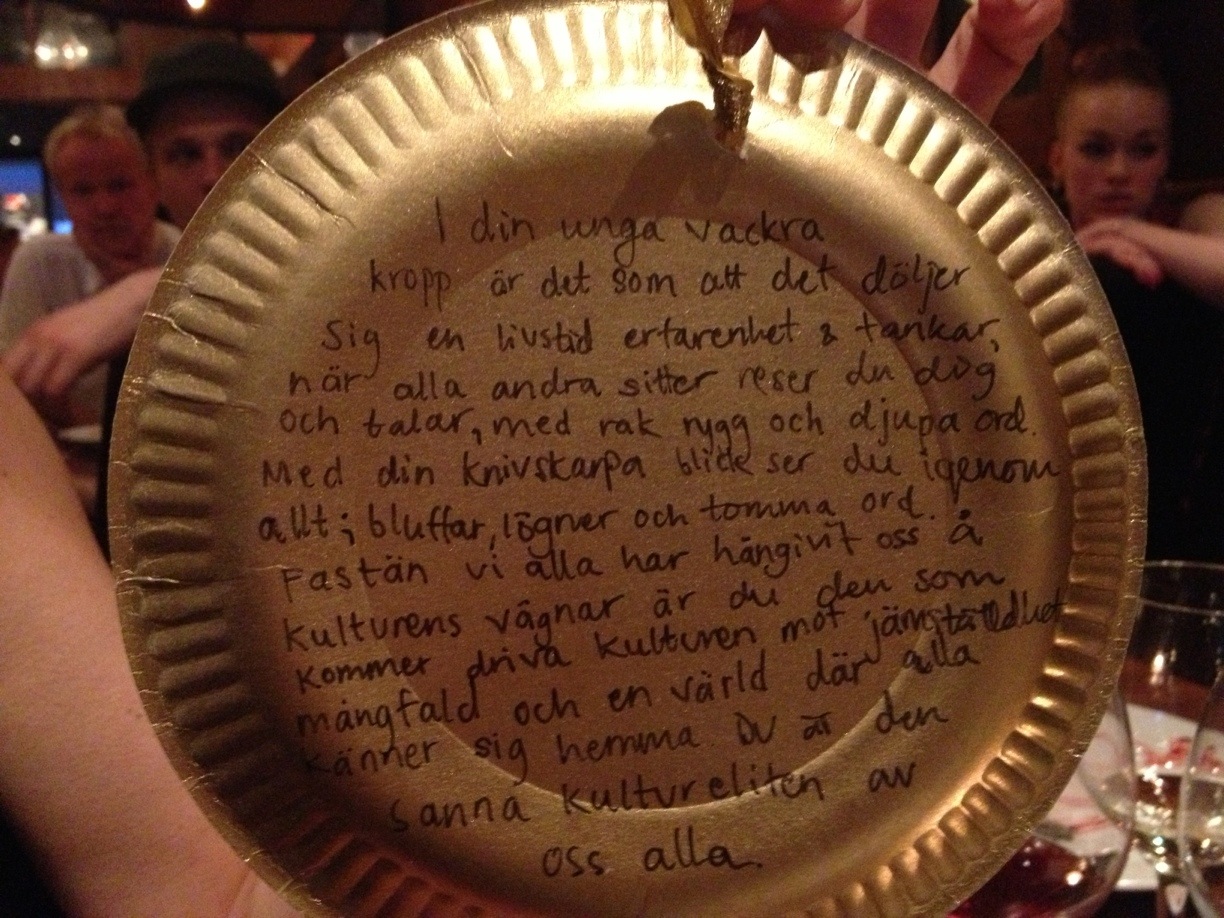 I din unga vackra
kropp är det som att det döljer
Sig en livstid erfarenhet & tankar,
när alla andra sitter reser du dig
och talar, med rak rygg och djupa ord.
Med din knivskarpa blick ser du igenom
allt; bluffar, lögner och tomma ord.
Fastän vi alla har hängivit oss å
kulturens vägnar är du den som
kommer driva kulturen mot jämställdhet
mångfald och en värld där alla
känner sig hemma. DU är den
Sanna kultureliten av
oss alla.